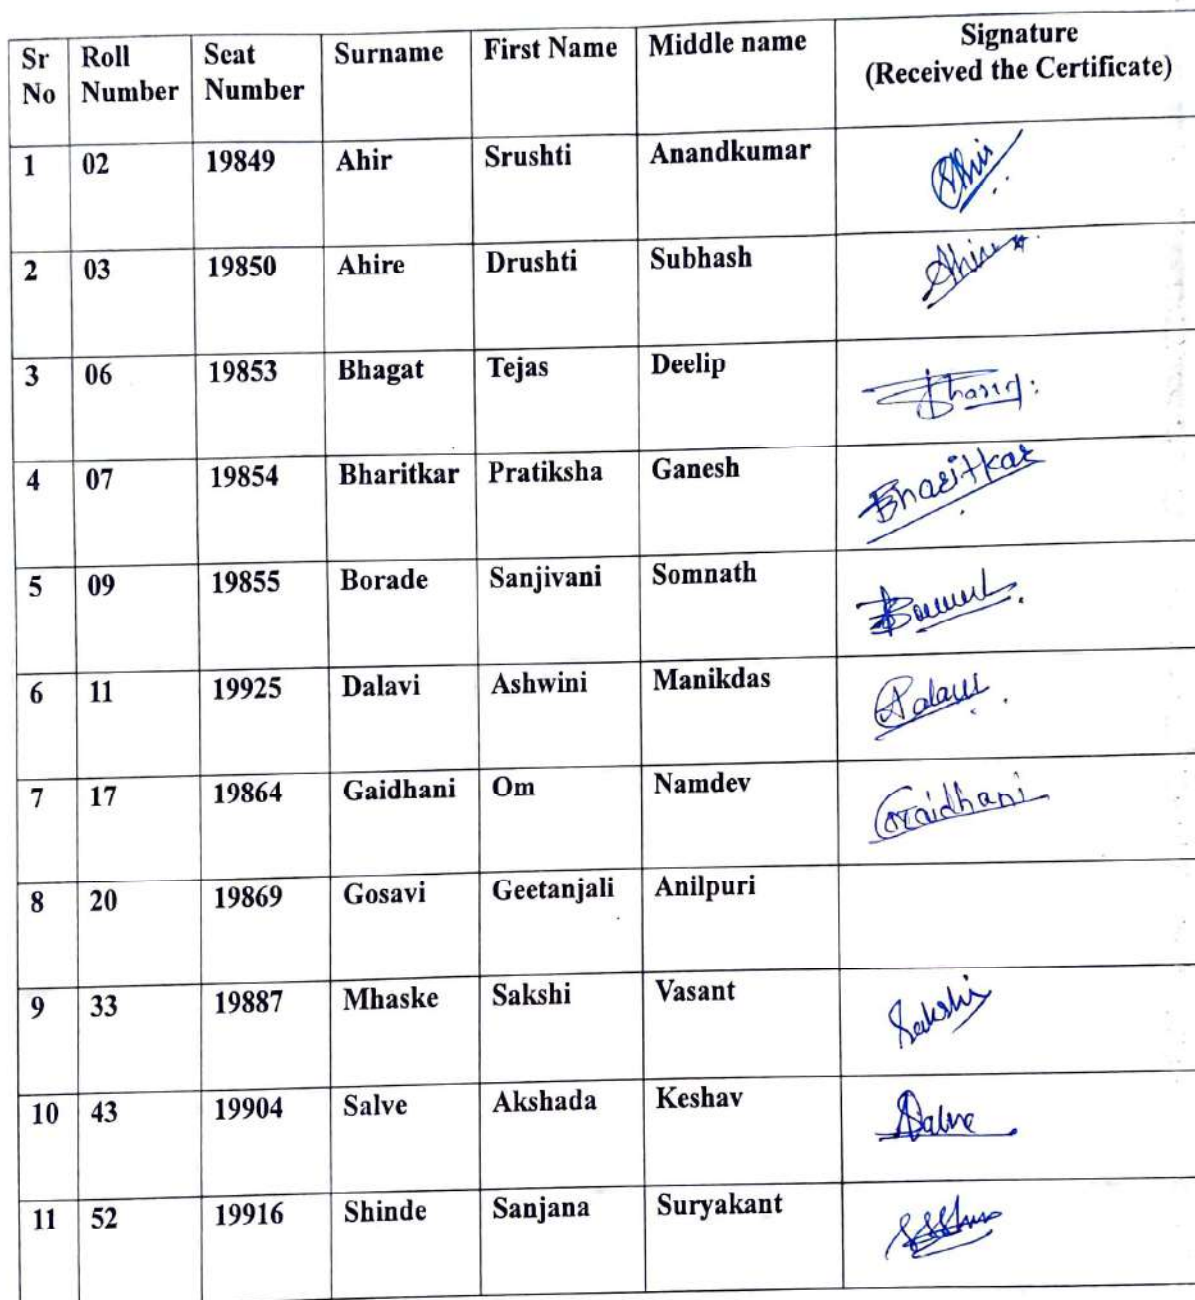 Sr No Roll Number Seat Number Surname First Name Middle name Signature (Received the Certificate)
1 02 19849 Ahir Srushti Anandkumar Ahir
2 03 19850 Ahire Drushti Subhash Ahire
3 06 19853 Bhagat Tejas Deelip
4 07 19854 Bharitkar Pratiksha Ganesh Bharitkar
5 09 19855 Borade Sanjivani Somnath
6 11 19925 Dalavi Ashwini Manikdas Dalavi
7 17 19864 Gaidhani Om Namdev Gaidhani
8 20 19869 Gosavi Geetanjali Anilpuri
9 33 19887 Mhaske Sakshi Vasant Sakshi
10 43 19904 Salve Akshada Keshav Salve
11 52 19916 Shinde Sanjana Suryakant